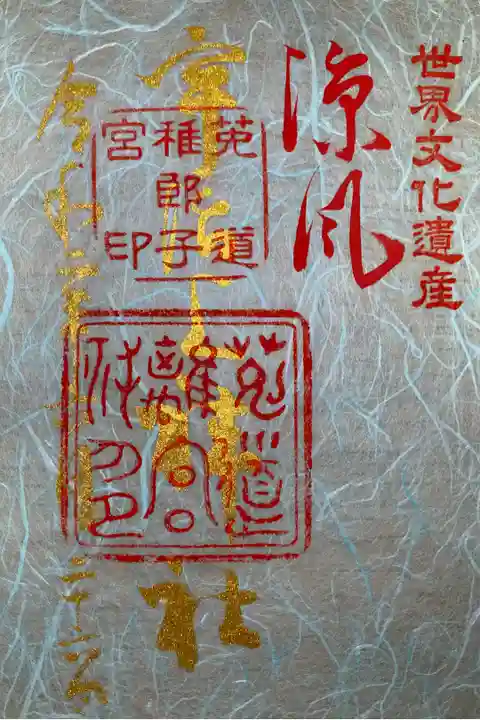 世界文化遺産
涼風
宇治上神社
菟道
稚郎子
宮印
菟道
令和二年
二十六日